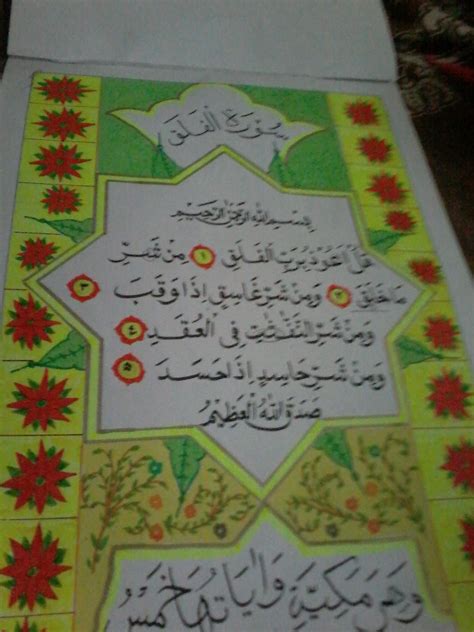 سُوْرَةُ الْفَلَقِ
بِسْمِ اللهِ الرَّحْمٰنِ الرَّحِيْمِ
قُلْ اَعُوْذُ بِرَبِّ الْفَلَقِ ١ مِنْ شَرِّ
مَا خَلَقَ ٢ وَمِنْ شَرِّ غَاسِقٍ اِذَا وَقَبَ ٣
وَمِنْ شَرِّ النَّفّٰثٰتِ فِى الْعُقَدِ ٤
وَمِنْ شَرِّ حَاسِدٍ اِذَا حَسَدَ ٥
صَدَقَ اللهُ الْعَظِيْمُ
وَهِيَ مَكِّيَّةٌ وَاٰيَاتُهَا خَمْسُ